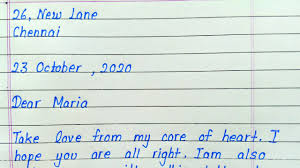 26, New Lane
Chennai
23 October, 2020
Dear Maria
Take love from my core of heart. I
hope you are all right. Iam also